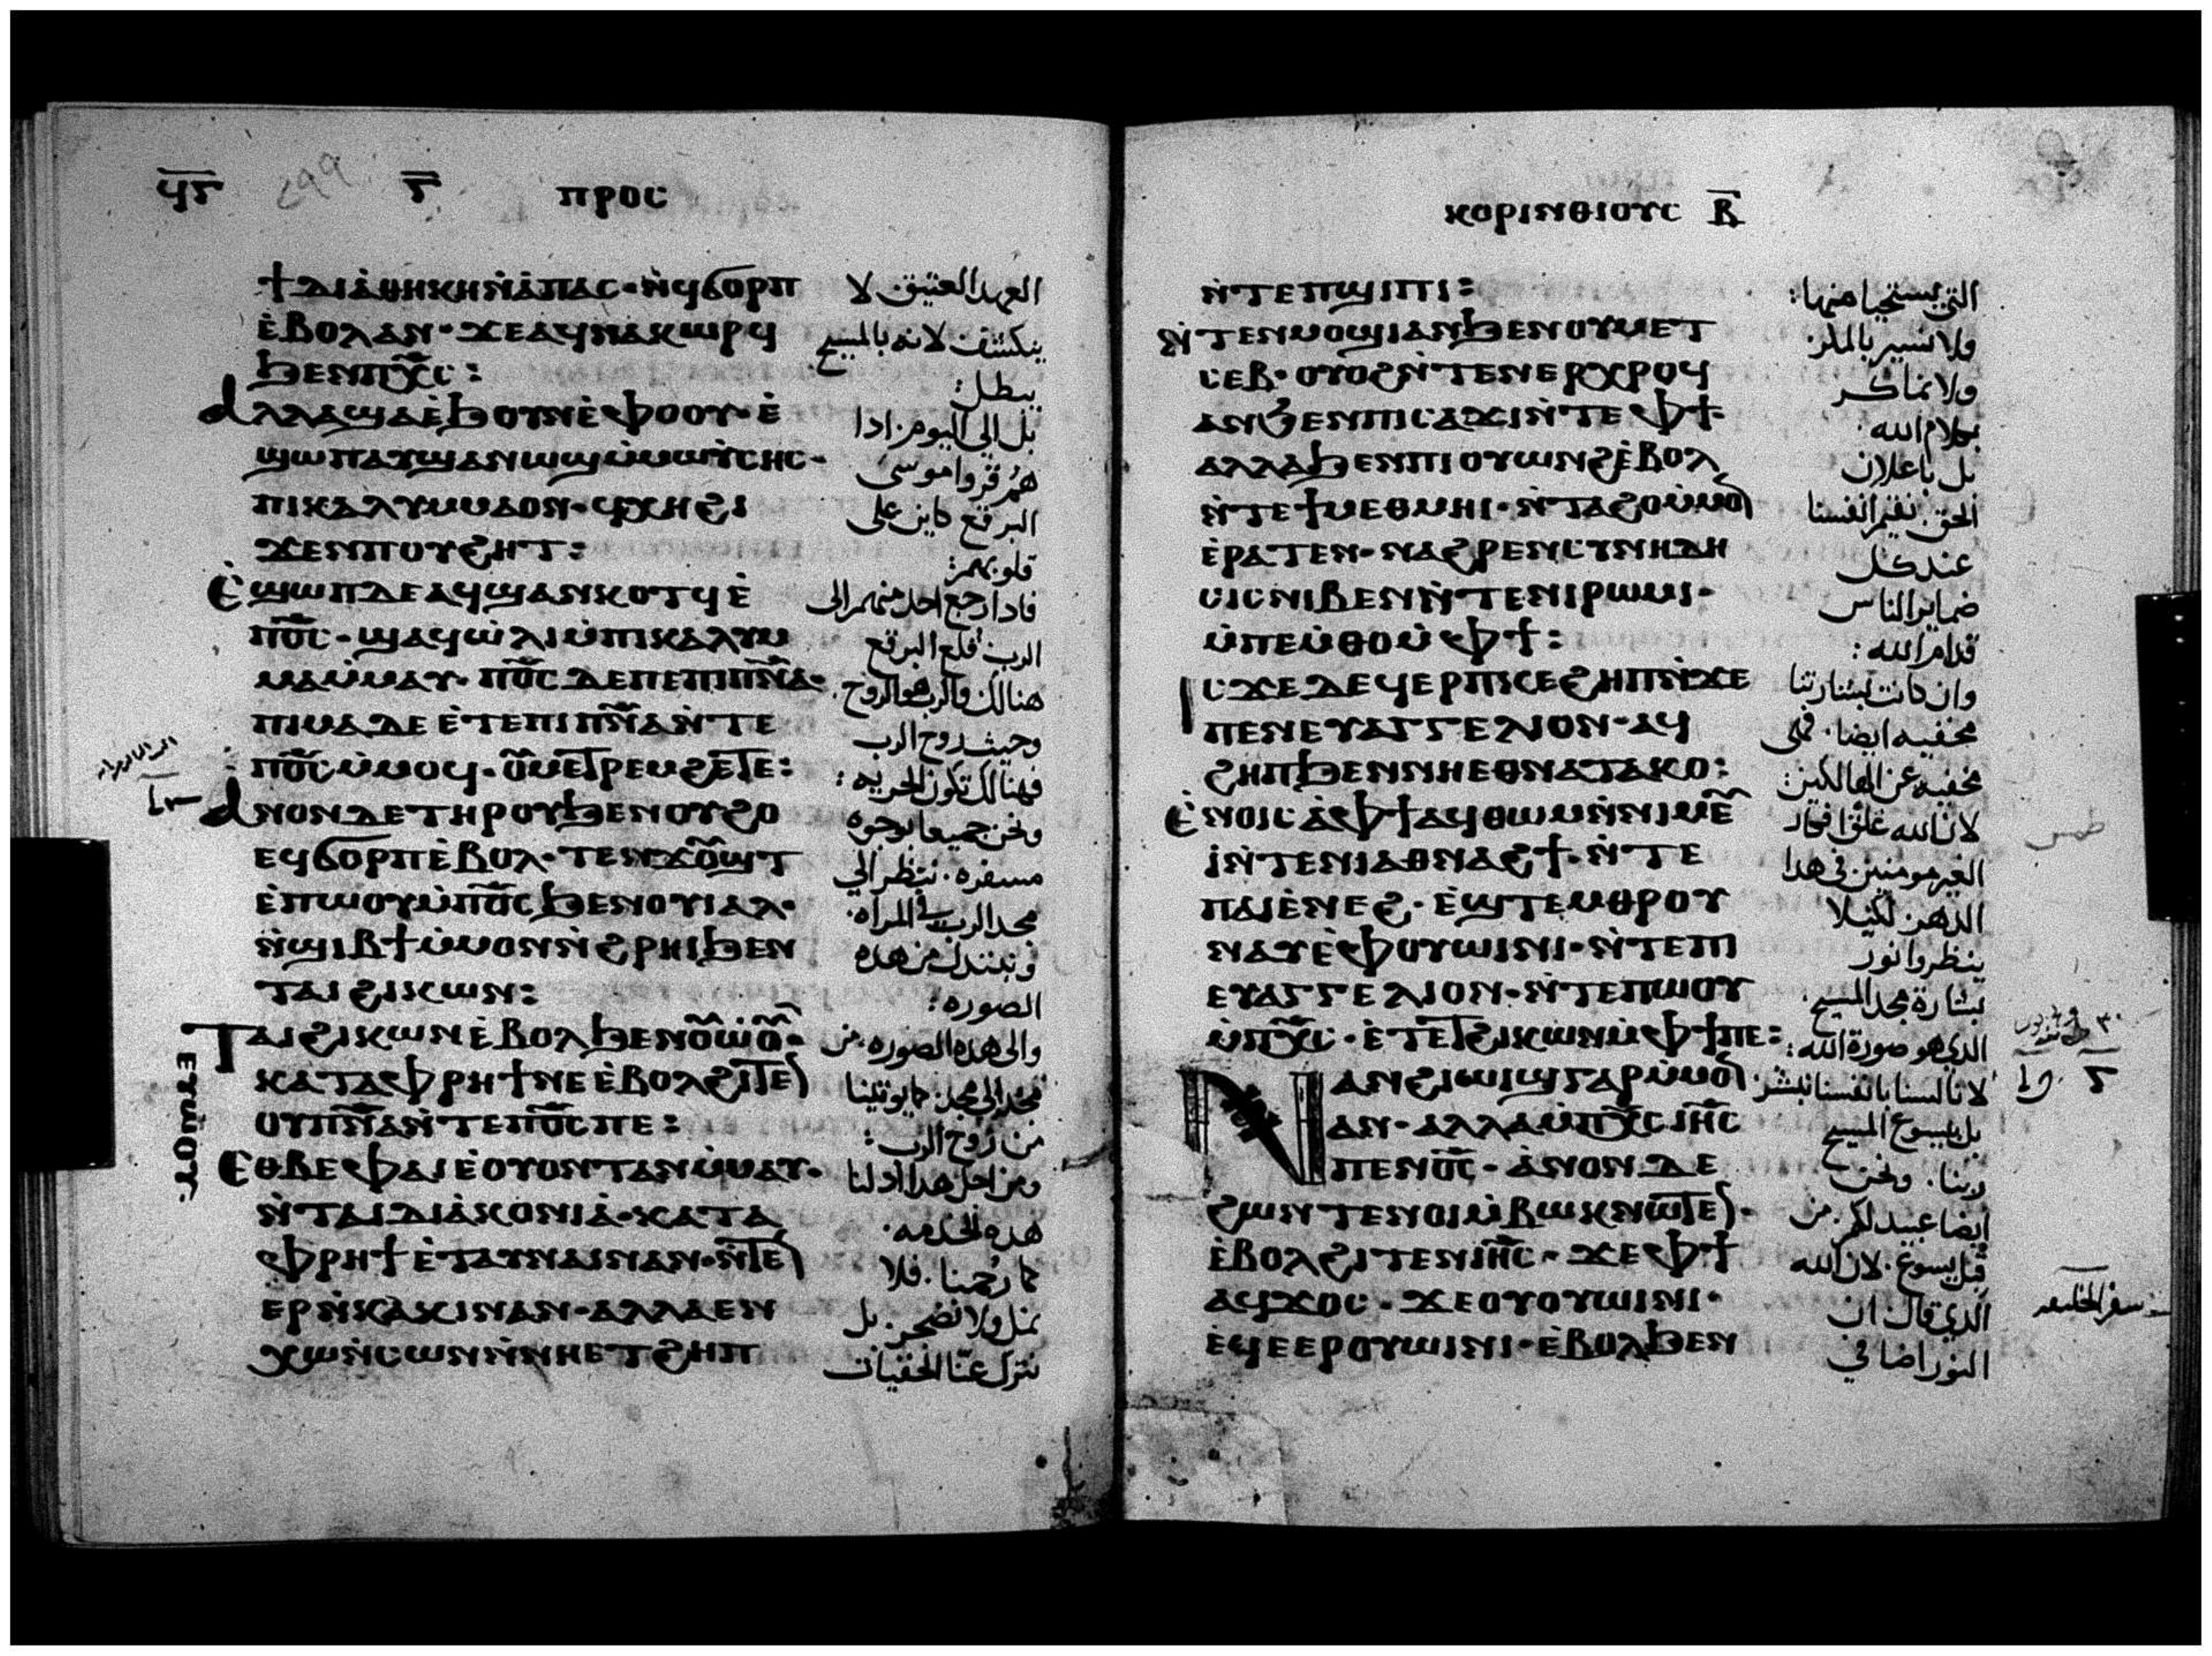 ϥⲋ ⲋ ⲡⲣⲟⲥ
ϯⲇⲓⲁ̇ⲑⲏⲕⲏⲛ̇ⲁ̇ⲡⲁⲥ·ⲛ̇ϥϭⲟⲣⲡ
ⲉ̇ⲃⲟⲗⲁⲛ·ϫⲉⲁϥⲛⲁⲕⲱⲣϥ
ϧⲉⲛⲡⲭ̅ⲥ̅:
ⲁⲗⲗⲁϣⲁⲉ̇ϧⲟⲩⲛⲉ̇ⲫⲟⲟⲩ·ⲉ̇
ϣⲱⲡⲁⲩϣⲁⲛⲱϣⲙ̇ⲙⲱⲩ̇ⲥⲏⲥ·
ⲡⲓⲕⲁⲗⲩⲙⲙⲁⲟⲛ·ϥⲭⲏϩⲓ
ϫⲉⲛⲡⲟⲩϩⲏⲧ:
ⲉ̇ϣⲱⲡⲇⲉⲁϥϣⲁⲛⲕⲟⲧϥⲉ̇
ⲡⲟ̅ⲥ̅·ϣⲁϥⲱ̇ⲗⲓⲙ̇ⲡⲓⲕⲁⲗⲩⲙ
ⲙⲁⲙ̇ⲙⲁⲩ·ⲡⲟ̅ⲥ̅ⲇⲉⲡⲉⲡⲓⲡⲛ̅ⲁ̅·
ⲡⲓⲙⲁⲇⲉⲉ̇ⲧⲉⲡⲓⲡⲛ̅ⲁ̅ⲛ̇ⲧⲉ
ⲡⲟ̅ⲥ̅ⲙ̇ⲙⲟϥ·ⲟ̅ⲙⲉⲧⲣⲉⲙϩⲉⲧⲉ:
ⲁⲛⲟⲛⲇⲉⲧⲏⲣⲟⲩϧⲉⲛⲟⲩϩⲟ
ⲉϥϭⲟⲣⲡⲉ̇ⲃⲟⲗ·ⲧⲉⲛϫⲟ̅ϣⲧ
ⲉ̇ⲡⲱⲟⲩⲙ̇ⲡⲟ̅ⲥ̅ϧⲉⲛⲟⲩⲓⲁⲗ·
ⲛ̇ϣⲓⲃϯⲙ̇ⲙⲟⲛⲛ̇ϩⲣⲏⲓϧⲉⲛ
ⲧⲁⲓϩⲓⲕⲱⲛ:
ⲧⲁⲓϩⲓⲕⲱⲛⲉ̇ⲃⲟⲗϧⲉⲛⲟ̅ⲱ̇ⲟ̅·
ⲕⲁⲧⲁⲫⲣⲏϯⲛⲉⲉ̇ⲃⲟⲗϩⲓⲧⲉ
ⲟⲩⲡⲛ̅ⲁ̅ⲛ̇ⲧⲉⲡⲟ̅ⲥ̅ⲡⲉ:
ⲉⲑⲃⲉⲫⲁⲓⲉ̇ⲟⲩⲟⲛⲧⲁⲛⲙ̇ⲙⲁⲩ·
ⲛ̇ⲧⲁⲓⲇⲓⲁ̇ⲕⲟⲛⲓⲁ̇·ⲕⲁⲧⲁ
ⲫⲣⲏϯⲉ̇ⲧⲁⲩⲛⲁⲓⲛⲁⲛ·ⲛ̇ⲧⲉ
ⲉⲣⲛ̇ⲕⲁⲕⲓⲛⲁⲛ·ⲁⲗⲗⲁⲉⲛ
ⲭⲱⲛ̇ⲥⲱⲛⲛ̇ⲛⲏⲉⲧϩⲏⲡ
العهد العتيق لا
ينكشف لانه بالمسيح
يبطل:
بل الي اليوم اذا
هم قروا موسى
البرقع كاين على
قلوبهم:
فاذا رجع احد منهم الى
الرب قلع البرقع
هنالك والرب هو الروح
وحيث روح الرب
فهنالك تكون الحريه:
ونحن جميعا بوجوه
مسفره ننظر الي
مجد الرب في المراه
ونتبدل من هذه
الصوره:
والى هذه الصوره من
مجد الى مجد كما يوتينا
من روح الرب:
ومن اجل هذا اذ لنا
هذه الخدمه
كما رحمنا فلا
نمل ولا نضجر بل
نترك عنا الخفيات
ⲕⲟⲣⲓⲛⲑⲓⲟⲩⲥ ⲃ̅
ⲛ̇ⲧⲉⲡϣⲓⲡⲓ:
ⲛ̇ⲧⲉⲛⲙⲟϣⲓⲁⲛϧⲉⲛⲟⲩⲙⲉⲧ
ⲥⲉⲃ·ⲟⲩⲟϩⲛ̇ⲧⲉⲛⲉⲣⲭⲣⲟϥ
ⲁⲛϧⲉⲛⲡⲓⲥⲁϫⲓⲛ̇ⲧⲉⲫϯ·
ⲁⲗⲗⲁϧⲉⲛⲡⲓⲟⲩⲱⲛϩⲉ̇ⲃⲟⲗ
ⲛ̇ⲧⲉϯⲙⲉⲑⲙⲏⲓ·ⲛ̇ⲧⲁϩⲟⲙ̇ⲙⲟ
ⲉ̇ⲣⲁⲧⲉⲛ·ⲛⲁϩⲣⲉⲛⲥⲩⲛⲏⲇⲏ
ⲥⲓⲥⲛⲓⲃⲉⲛⲛ̇ⲧⲉⲛⲓⲣⲱⲙⲓ·
ⲙ̇ⲡⲉⲙ̇ⲑⲟⲙ̇ⲫϯ:
ⲓⲥϫⲉⲇⲉϥⲉⲣⲡⲕⲉϩⲏⲡⲛ̇ϫⲉ
ⲡⲉⲛⲉⲩⲁⲅⲅⲉⲗⲓⲟⲛ·ⲁϥ
ϩⲏⲡϧⲉⲛⲛⲏⲉⲑⲛⲁⲧⲁⲕⲟ:
ⲉ̇ⲛⲟⲓⲥⲁ̇ⲫϯⲁϥⲑⲱⲙⲛ̇ⲛⲓⲙⲉ̅
ⲓ̇ⲛ̇ⲧⲉⲛⲓⲁⲑⲛⲁϩϯ·ⲛ̇ⲧⲉ
ⲡⲁⲓⲉ̇ⲛⲉϩ·ⲉ̇ϣⲧⲉⲙⲑⲣⲟⲩ
ⲛⲁⲩⲉ̇ⲫⲟⲩⲱⲓⲛⲓ·ⲛ̇ⲧⲉⲡⲓ
ⲉⲩⲁⲅⲅⲉⲗⲓⲟⲛ·ⲛ̇ⲧⲉⲡⲱⲟⲩ
ⲙ̇ⲡⲭ̅ⲥ̅·ⲉ̇ⲧⲉⲧϩⲓⲕⲱⲛⲙ̇ⲫϯⲡⲉ:
ⲛⲁⲛϩⲓⲱⲓϣⲅⲁⲣⲙ̇ⲙⲟ
ⲁⲛ·ⲁⲗⲗⲁⲙ̇ⲡⲭ̅ⲥ̅ⲓⲏ̅ⲥ̅
ⲡⲉⲛⲟ̅ⲥ̅·ⲁ̇ⲛⲟⲛⲇⲉ
ϩⲱⲛⲧⲉⲛⲟⲓⲙ̇ⲃⲱⲕⲛⲱⲧⲉ·
ⲉ̇ⲃⲟⲗϩⲓⲧⲉⲛⲓⲏ̅ⲥ̅·ϫⲉⲫϯ
ⲁϥϫⲟⲥ·ϫⲉⲟⲩⲟⲩⲱⲓⲛⲓ·
ⲉϥⲉⲉⲣⲟⲩⲱⲓⲛⲓ·ⲉ̇ⲃⲟⲗϧⲉⲛ
التي يستحيا منها:
ولا نسير بالمكر
ولا نماكر
بكلام الله
بل باعلان
الحق نقيم انفسنا
عند كل
ضماير الناس
قدام الله:
وان كانت بشارتنا
مخفيه ايضا فهى
مخفيه عن الهالكين:
لان الله
الغير مومنين في هذا
الدهر لكيلا
ينظروا نور
بشارة مجد المسيح
الذي هو صورة الله:
لاننا لسنا بانفسنا نبشر
بل بيسوع المسيح
ربنا ونحن
ايضا عبيد لكم من
قبل يسوع لان الله
الذي قال ان
النور اضا في
طمس
ⲋ
سفر الخليقه